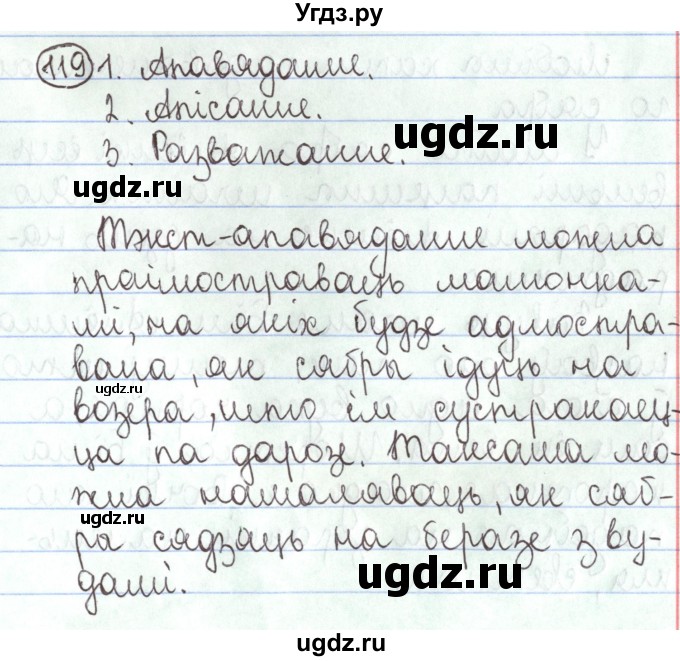 Угdz.ру
119 1. Апавяданне.
2. Апісанне.
3. Разважанне.
ugdz.ru
ugdz.ru
Тэкст-апавяданне можна
праілюстраваць малюнка-
мі, на якіх будзе адлюстра-
вана, як сябры ідуць на
ugdz.ru
возера, што ім сустракаец-
ца па дарозе. Таксама мо-
жна намаляваць, як сяб-
ugdz.ru
ры сядзяць на беразе з ву-
дамі.
ugdz.ru
ugdz.ru